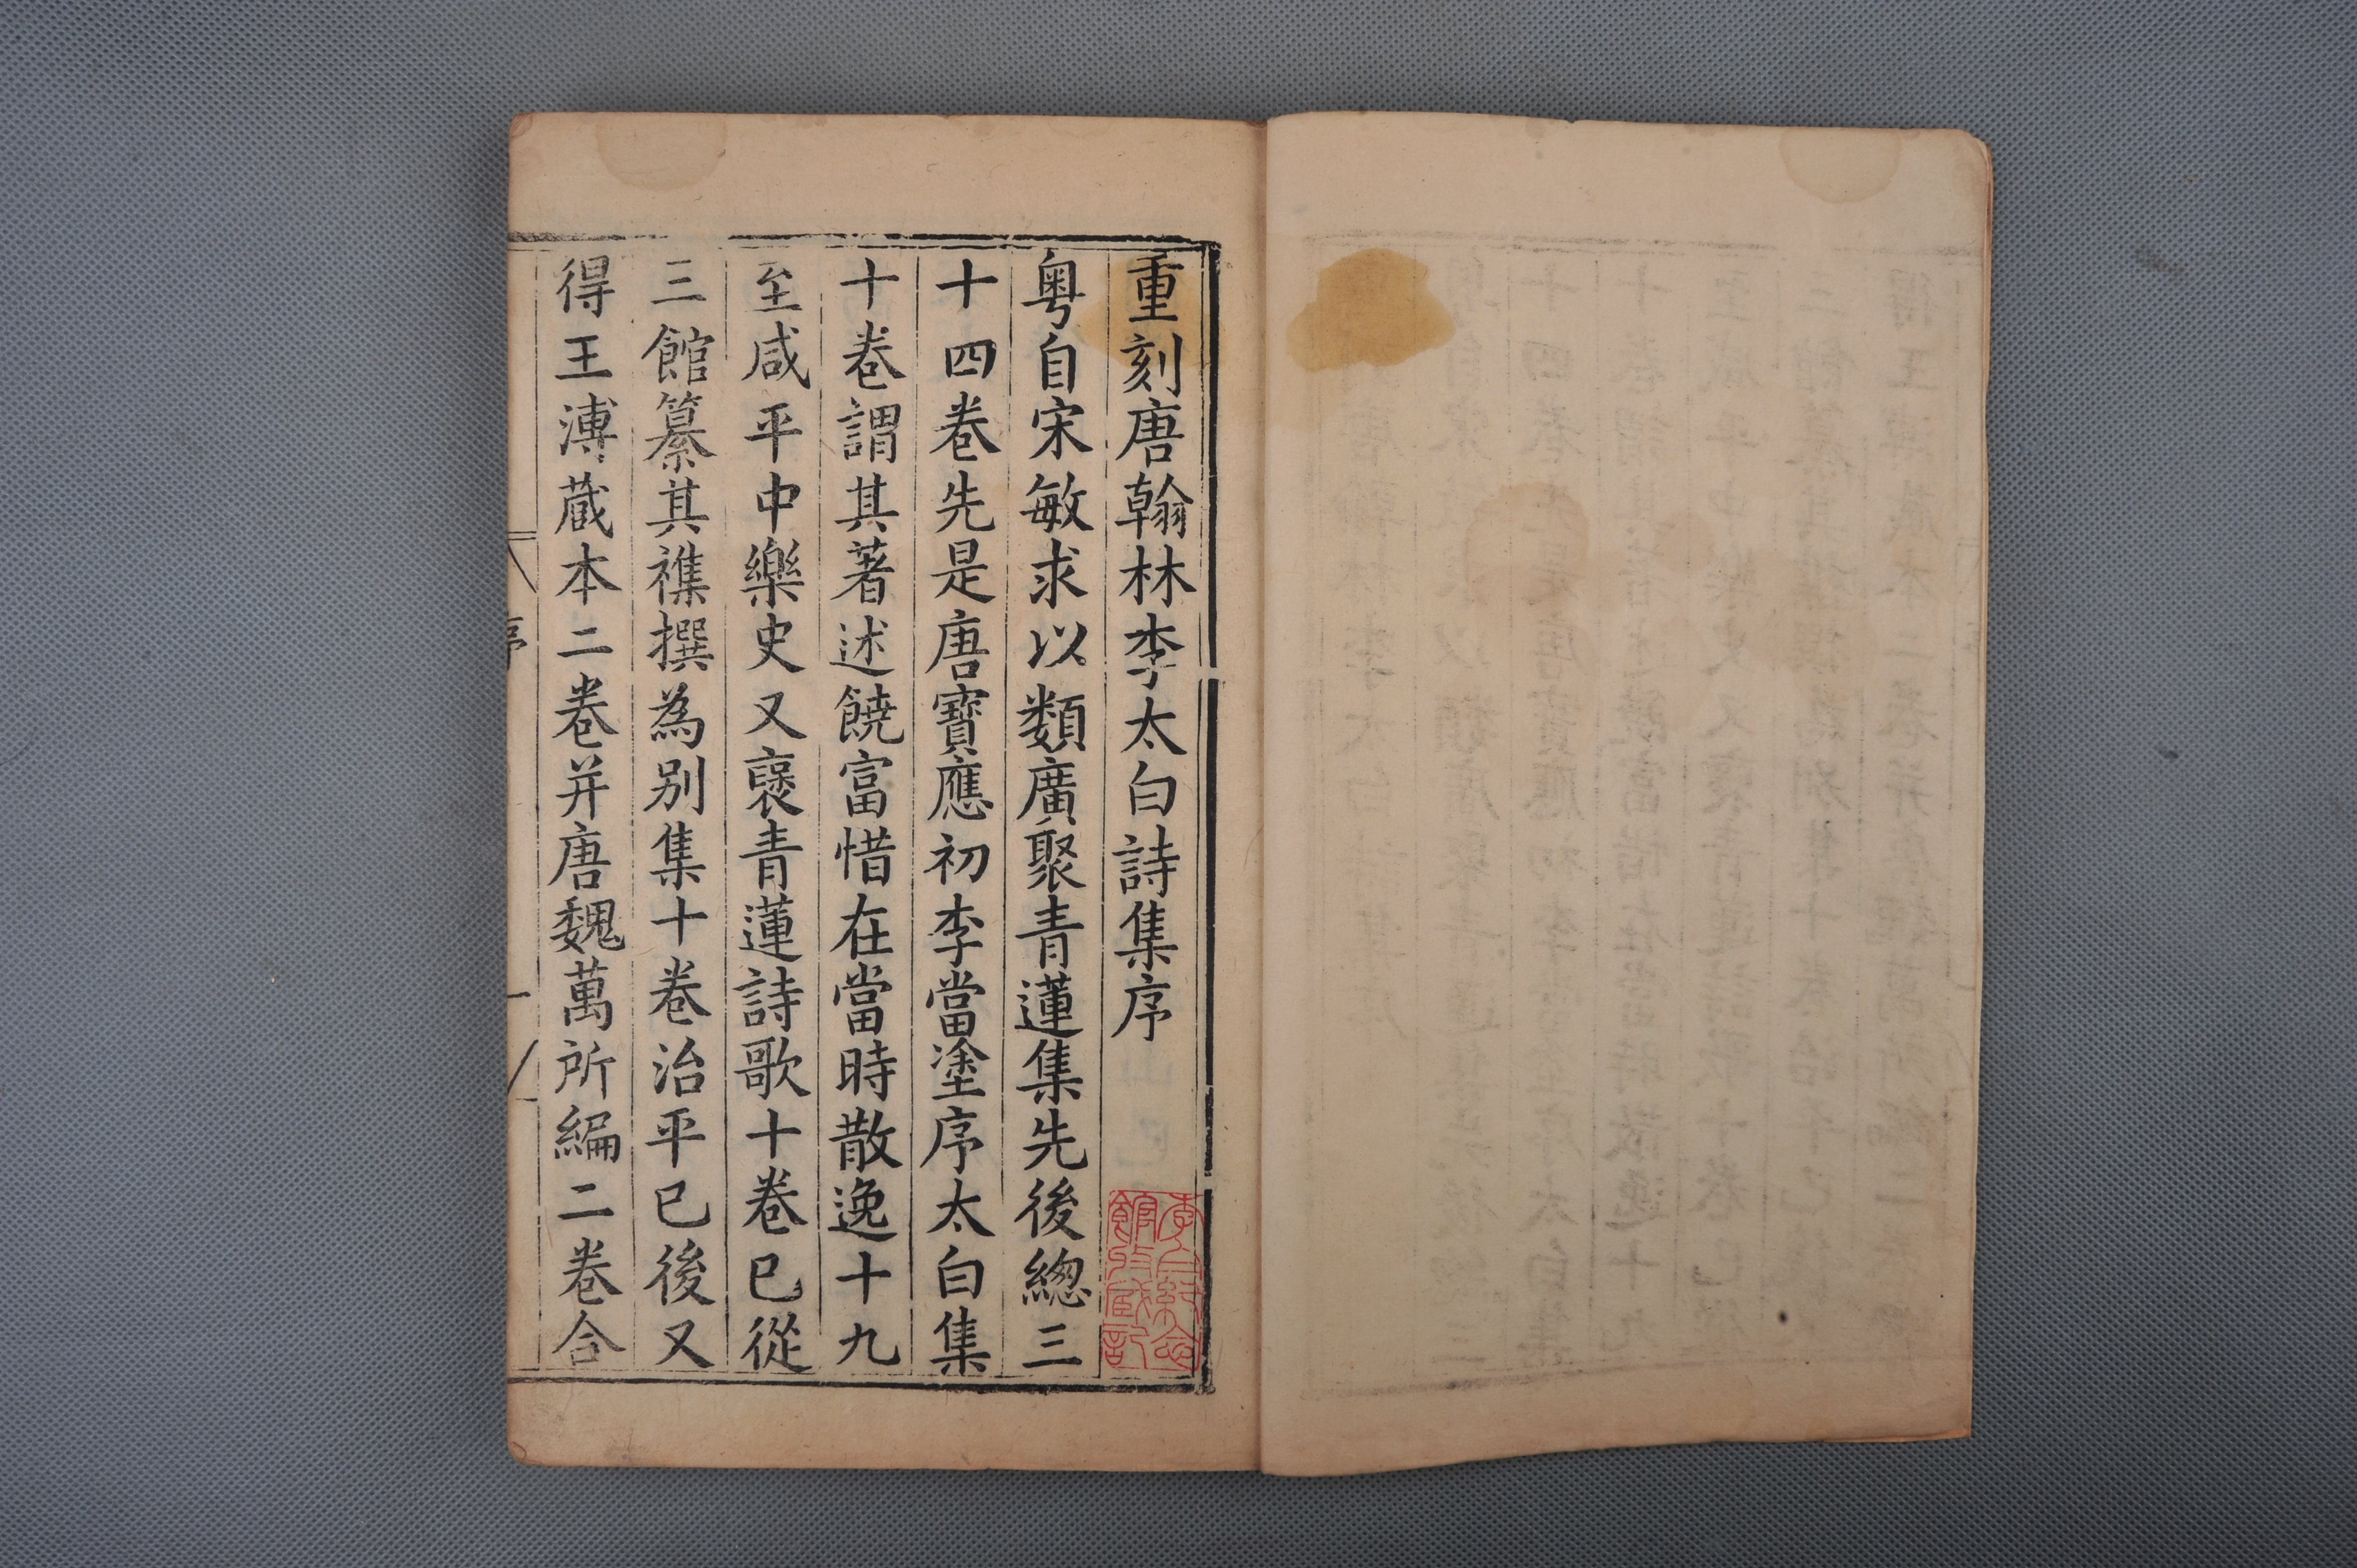 重刻唐翰林李太白詩集序
粤自宋敏求以類廣聚青蓮集先後緫三
十四卷先是唐寶應初李當塗序太白集
十卷謂其著述饒富惜在當時散逸十九
至咸平中樂史又裒青蓮詩歌十卷已從
三館纂其襍撰為别集十卷治平已後又
得王溥蔵本二卷并唐魏萬所編二卷合
序
一
李白紀念
館收藏記